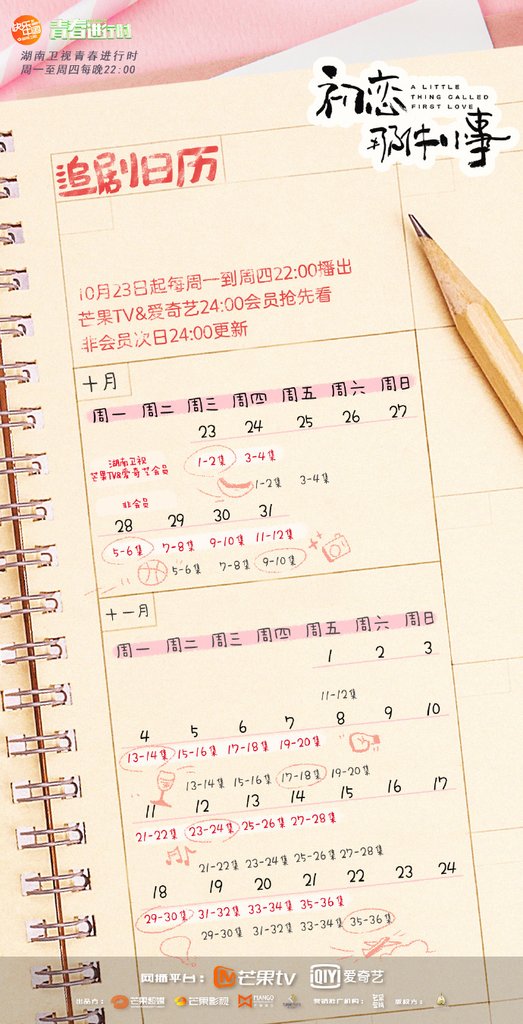 快乐中国
青春进行时
湖南卫视青春进行时
周一至周四每晚22:00
初恋
A LITTLE
THING CALLED
FIRST LOVE
那件小事
追剧日历
10月23日起每周一到周四22:00播出
芒果TV&爱奇艺24:00会员抢先看
非会员次日24:00更新
十月
周一 周二 周三 周四 周五 周六 周日
23 24 25 26 27
湖南卫视
芒果TV&爱奇艺会员
1-2集 3-4集
1-2集 3-4集
非会员
28 29 30 31
5-6集 7-8集 9-10集 11-12集
5-6集 7-8集 9-10集
十一月
周一 周二 周三 周四 周五 周六 周日
1 2 3
11-12集
4 5 6 7 8 9 10
13-14集 15-16集 17-18集 19-20集
13-14集 15-16集 17-18集 19-20集
11 12 13 14 15 16 17
21-22集 23-24集 25-26集 27-28集
21-22集 23-24集 25-26集 27-28集
18 19 20 21 22 23 24
29-30集 31-32集 33-34集 35-36集
29-30集 31-32集 33-34集 35-36集
网播平台: 芒果tv iQIYI 爱奇艺
出品方: 芒果超媒 芒果影视 MANGO 营销推广机构: 版权方: